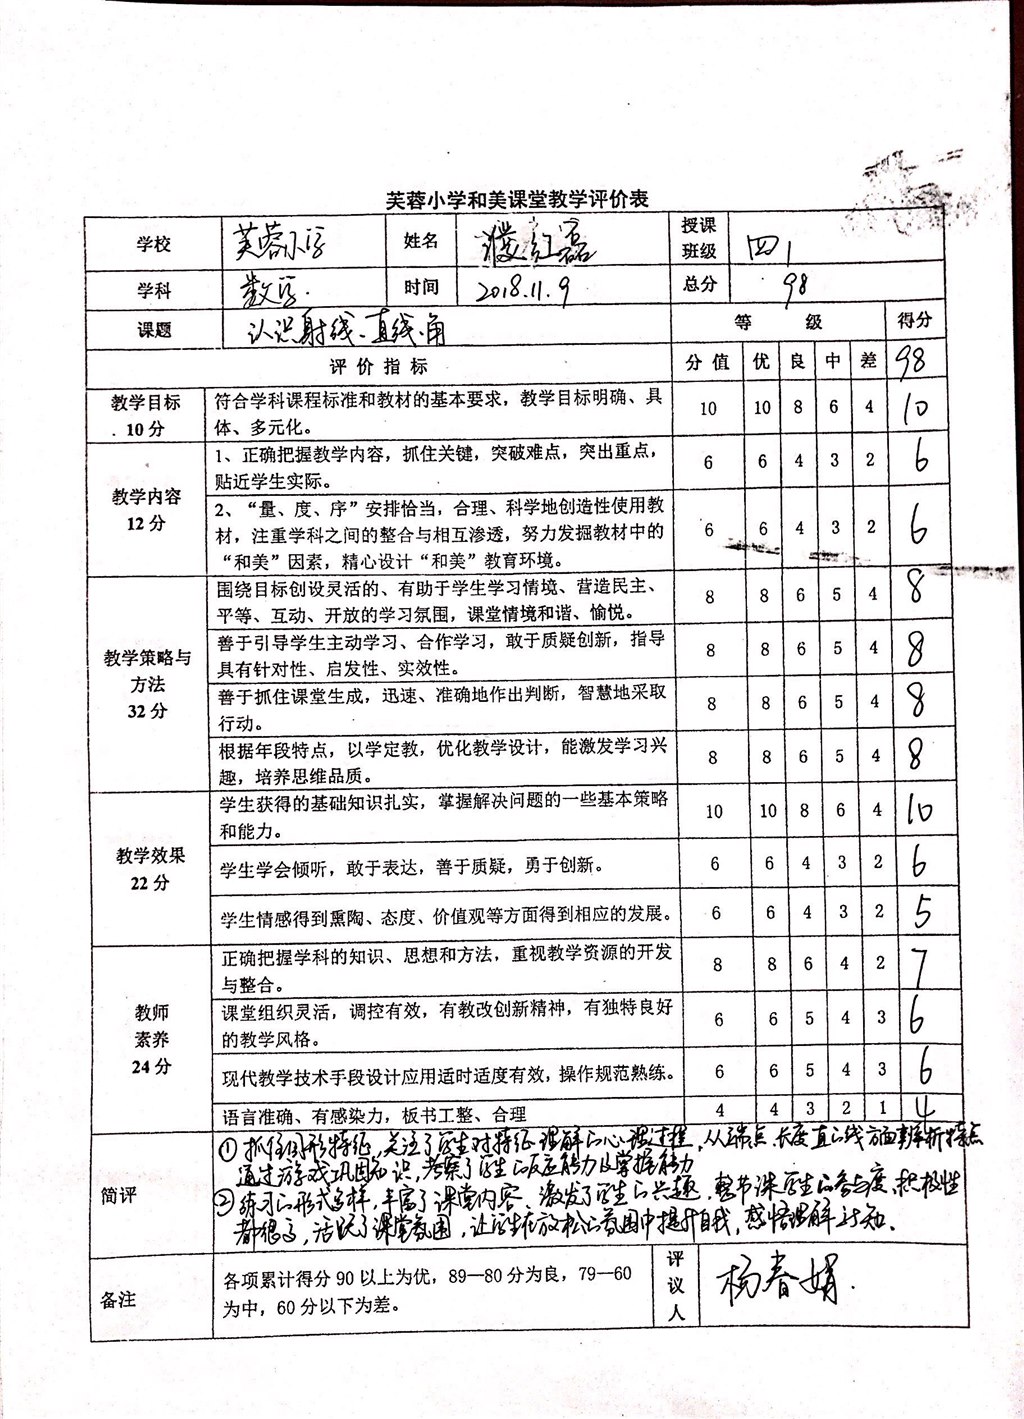 芙蓉小学和美课堂教学评价表
学校 芙蓉小学 姓名 濮红磊 授课班级 四1
学科 数学. 时间 2018.11.9 总分 98
课题 认识射线、直线、角 等 级 得分
评 价 指 标 分 值 优 良 中 差 98
教学目标 10 分 符合学科课程标准和教材的基本要求，教学目标明确、具
体、多元化。 10 10 8 6 4 10
教学内容 12 分 1、正确把握教学内容，抓住关键，突破难点，突出重点，
贴近学生实际。 6 6 4 3 2 6
2、“量、度、序”安排恰当，合理、科学地创造性使用教
材，注重学科之间的整合与相互渗透，努力发掘教材中的
“和美”因素，精心设计“和美”教育环境。 6 6 4 3 2 6
教学策略与方法 32 分 围绕目标创设灵活的、有助于学生学习情境、营造民主、
平等、互动、开放的学习氛围，课堂情境和谐、愉悦。 8 8 6 5 4 8
善于引导学生主动学习、合作学习，敢于质疑创新，指导
具有针对性、启发性、实效性。 8 8 6 5 4 8
善于抓住课堂生成，迅速、准确地作出判断，智慧地采取
行动。 8 8 6 5 4 8
根据年段特点，以学定教，优化教学设计，能激发学习兴
趣，培养思维品质。 8 8 6 5 4 8
教学效果 22 分 学生获得的基础知识扎实，掌握解决问题的一些基本策略
和能力。 10 10 8 6 4 10
学生学会倾听，敢于表达，善于质疑，勇于创新。 6 6 4 3 2 6
学生情感得到熏陶、态度、价值观等方面得到相应的发展。 6 6 4 3 2 5
教师素养 24 分 正确把握学科的知识、思想和方法，重视教学资源的开发
与整合。 8 8 6 4 2 7
课堂组织灵活，调控有效，有教改创新精神，有独特良好
的教学风格。 6 6 5 4 3 6
现代教学技术手段设计应用适时适度有效，操作规范熟练。 6 6 5 4 3 6
语言准确、有感染力，板书工整、合理 4 4 3 2 1 4
简评 ①抓住图形特征，关注了学生对特征理解的心理过程，从端点、长度、直的线方面辨析特点
通过游戏巩固知识，考察了学生的反应能力及掌握能力
②练习的形式多样，丰富了课堂内容，激发了学生的兴趣，整节课学生的参与度、积极性
都很高，活跃了课堂氛围，让学生在放松的氛围中提升自我，感悟理解新知.
备注 各项累计得分 90 以上为优，89—80 分为良，79—60
为中，60 分以下为差。 评议人 杨春娟.